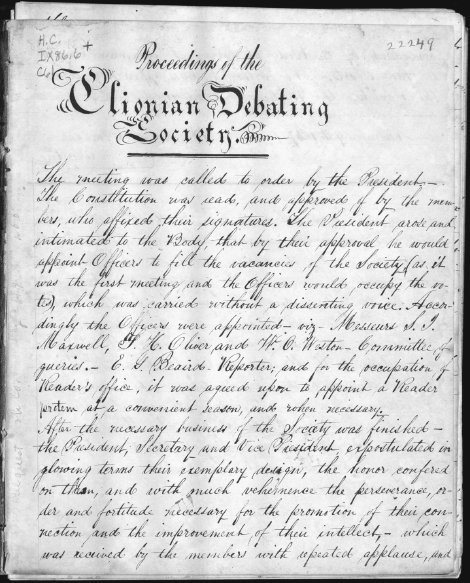 H.C.
IX86.6
C61
+
22249
Proceedings of the
Clionian Debating
Society.
The meeting was called to order by the President.—
The Constitution was read, and approved if by the mem-
bers, who affixed their signatures. The President arose and
intimated to the Body, that by their approval he would
appoint Officers to fill the vacancies of the Society (as it
was the first meeting and the Officers would occupy the vo-
ted, which was carried without a dissenting voice. Accor-
dingly the Officers were appointed— viz— Messeurs S. J.
Maxwell, H. Oliver, and W. O. Weston— Committee for
queries.— E. G. Beaird. Reporter; and for the occupation of
Reader's office, it was agreed upon to appoint a Reader
protem at a convenient season, and when necessary.
After the necessary business of the Society was finished—
the President, Secretary and Vice President, expostulated in
glowing terms their exemplary design, the honor confered
on them, and with much vehemence the perseverance, or-
der and fortitude necessary for the promotion of their con-
nection and the improvement of their intellect,— which
was received by the members with repeated applause, and